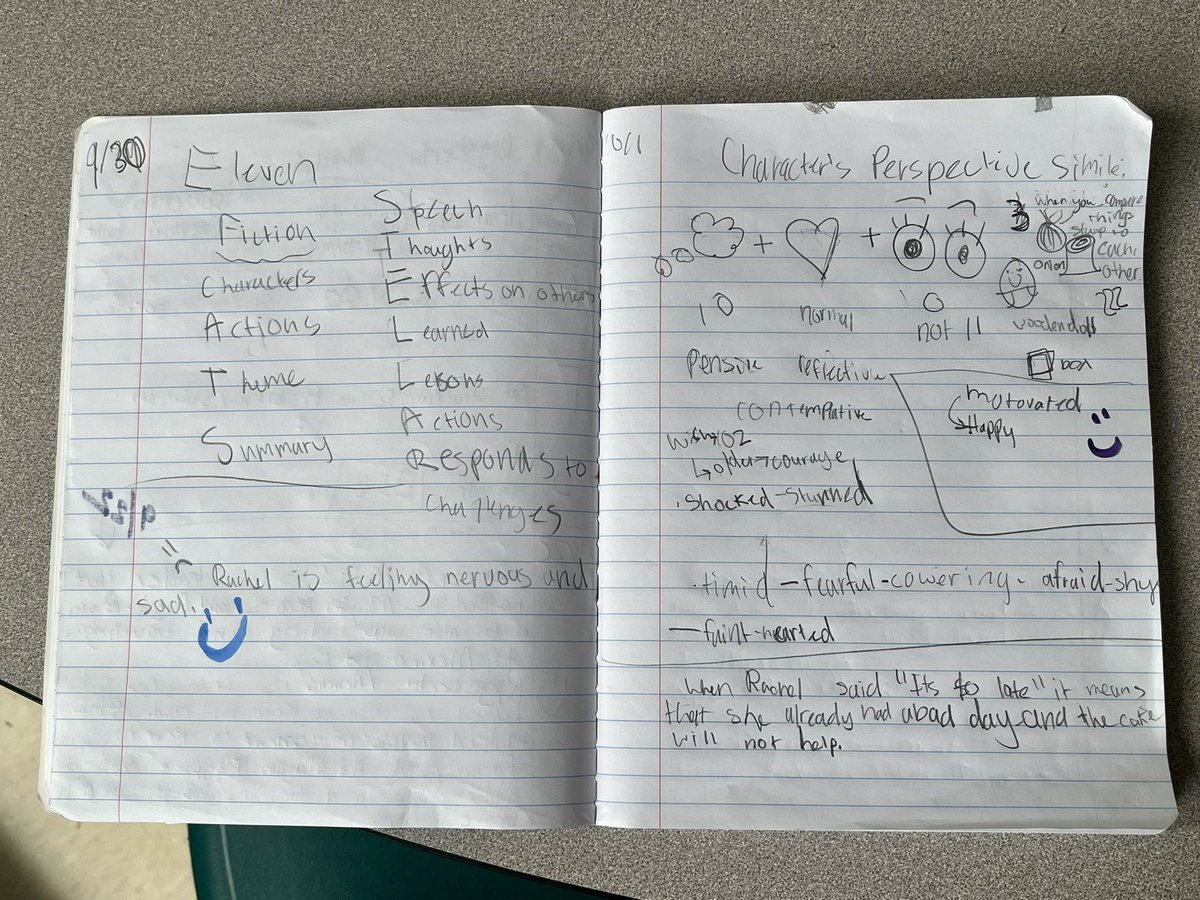 9/30
Eleven
Fiction
Characters
Actions
Theme
Summary
Speech
Thoughts
Effects on others
Learned
Lesons
Actions
Responds to
Challenges
Rachel is feeling nervous and
sad.
10/1
Character's Perspective Simile:
when you compare
things
to
each
other
+
+
onion
10
normal
not 11
woodendolls
box
Pensive reflective
contemplative
wish 102
↳older→courage
. shocked-stunned
motovated
↳Happy
. timid - fearful-cowering- afraid-shy
- faint-hearted
When Rachel said "Its to late" it means
that she already had a bad day and the cake
will not help.